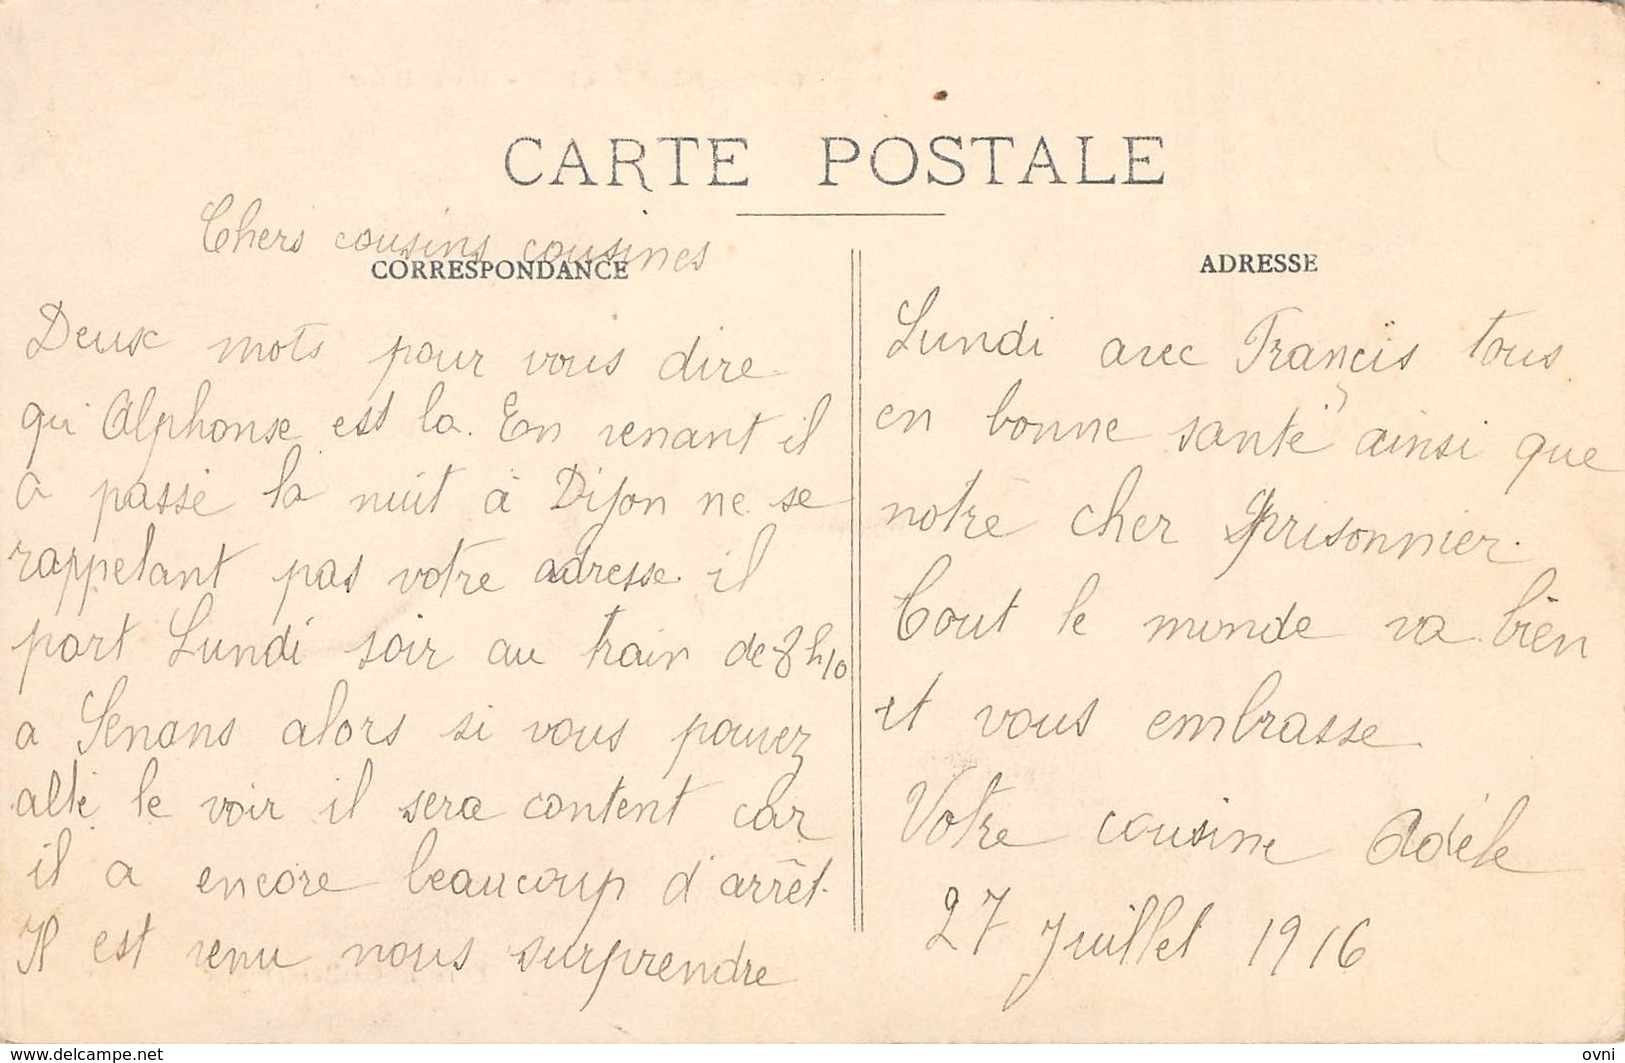 CARTE POSTALE
Chers cousins cousines
CORRESPONDANCE
Deux mots pour vous dire
qui Alphonse est la. En venant il
a passé la nuit à Dijon ne se
rappelant pas votre adresse. il
part Lundi soir au train de 8h10
a Senans alors si vous pouvez
allé le voir il sera content car
il a encore beaucoup d'arrêt.
Il est venu nous surprendre
ADRESSE
Lundi avec Françis tous
en bonne santé ainsi que
notre cher prisonnier.
Tout le monde va bien
et vous embrasse.
Votre cousine Adèle
27 Juillet 1916
www.delcampe.net
ovni